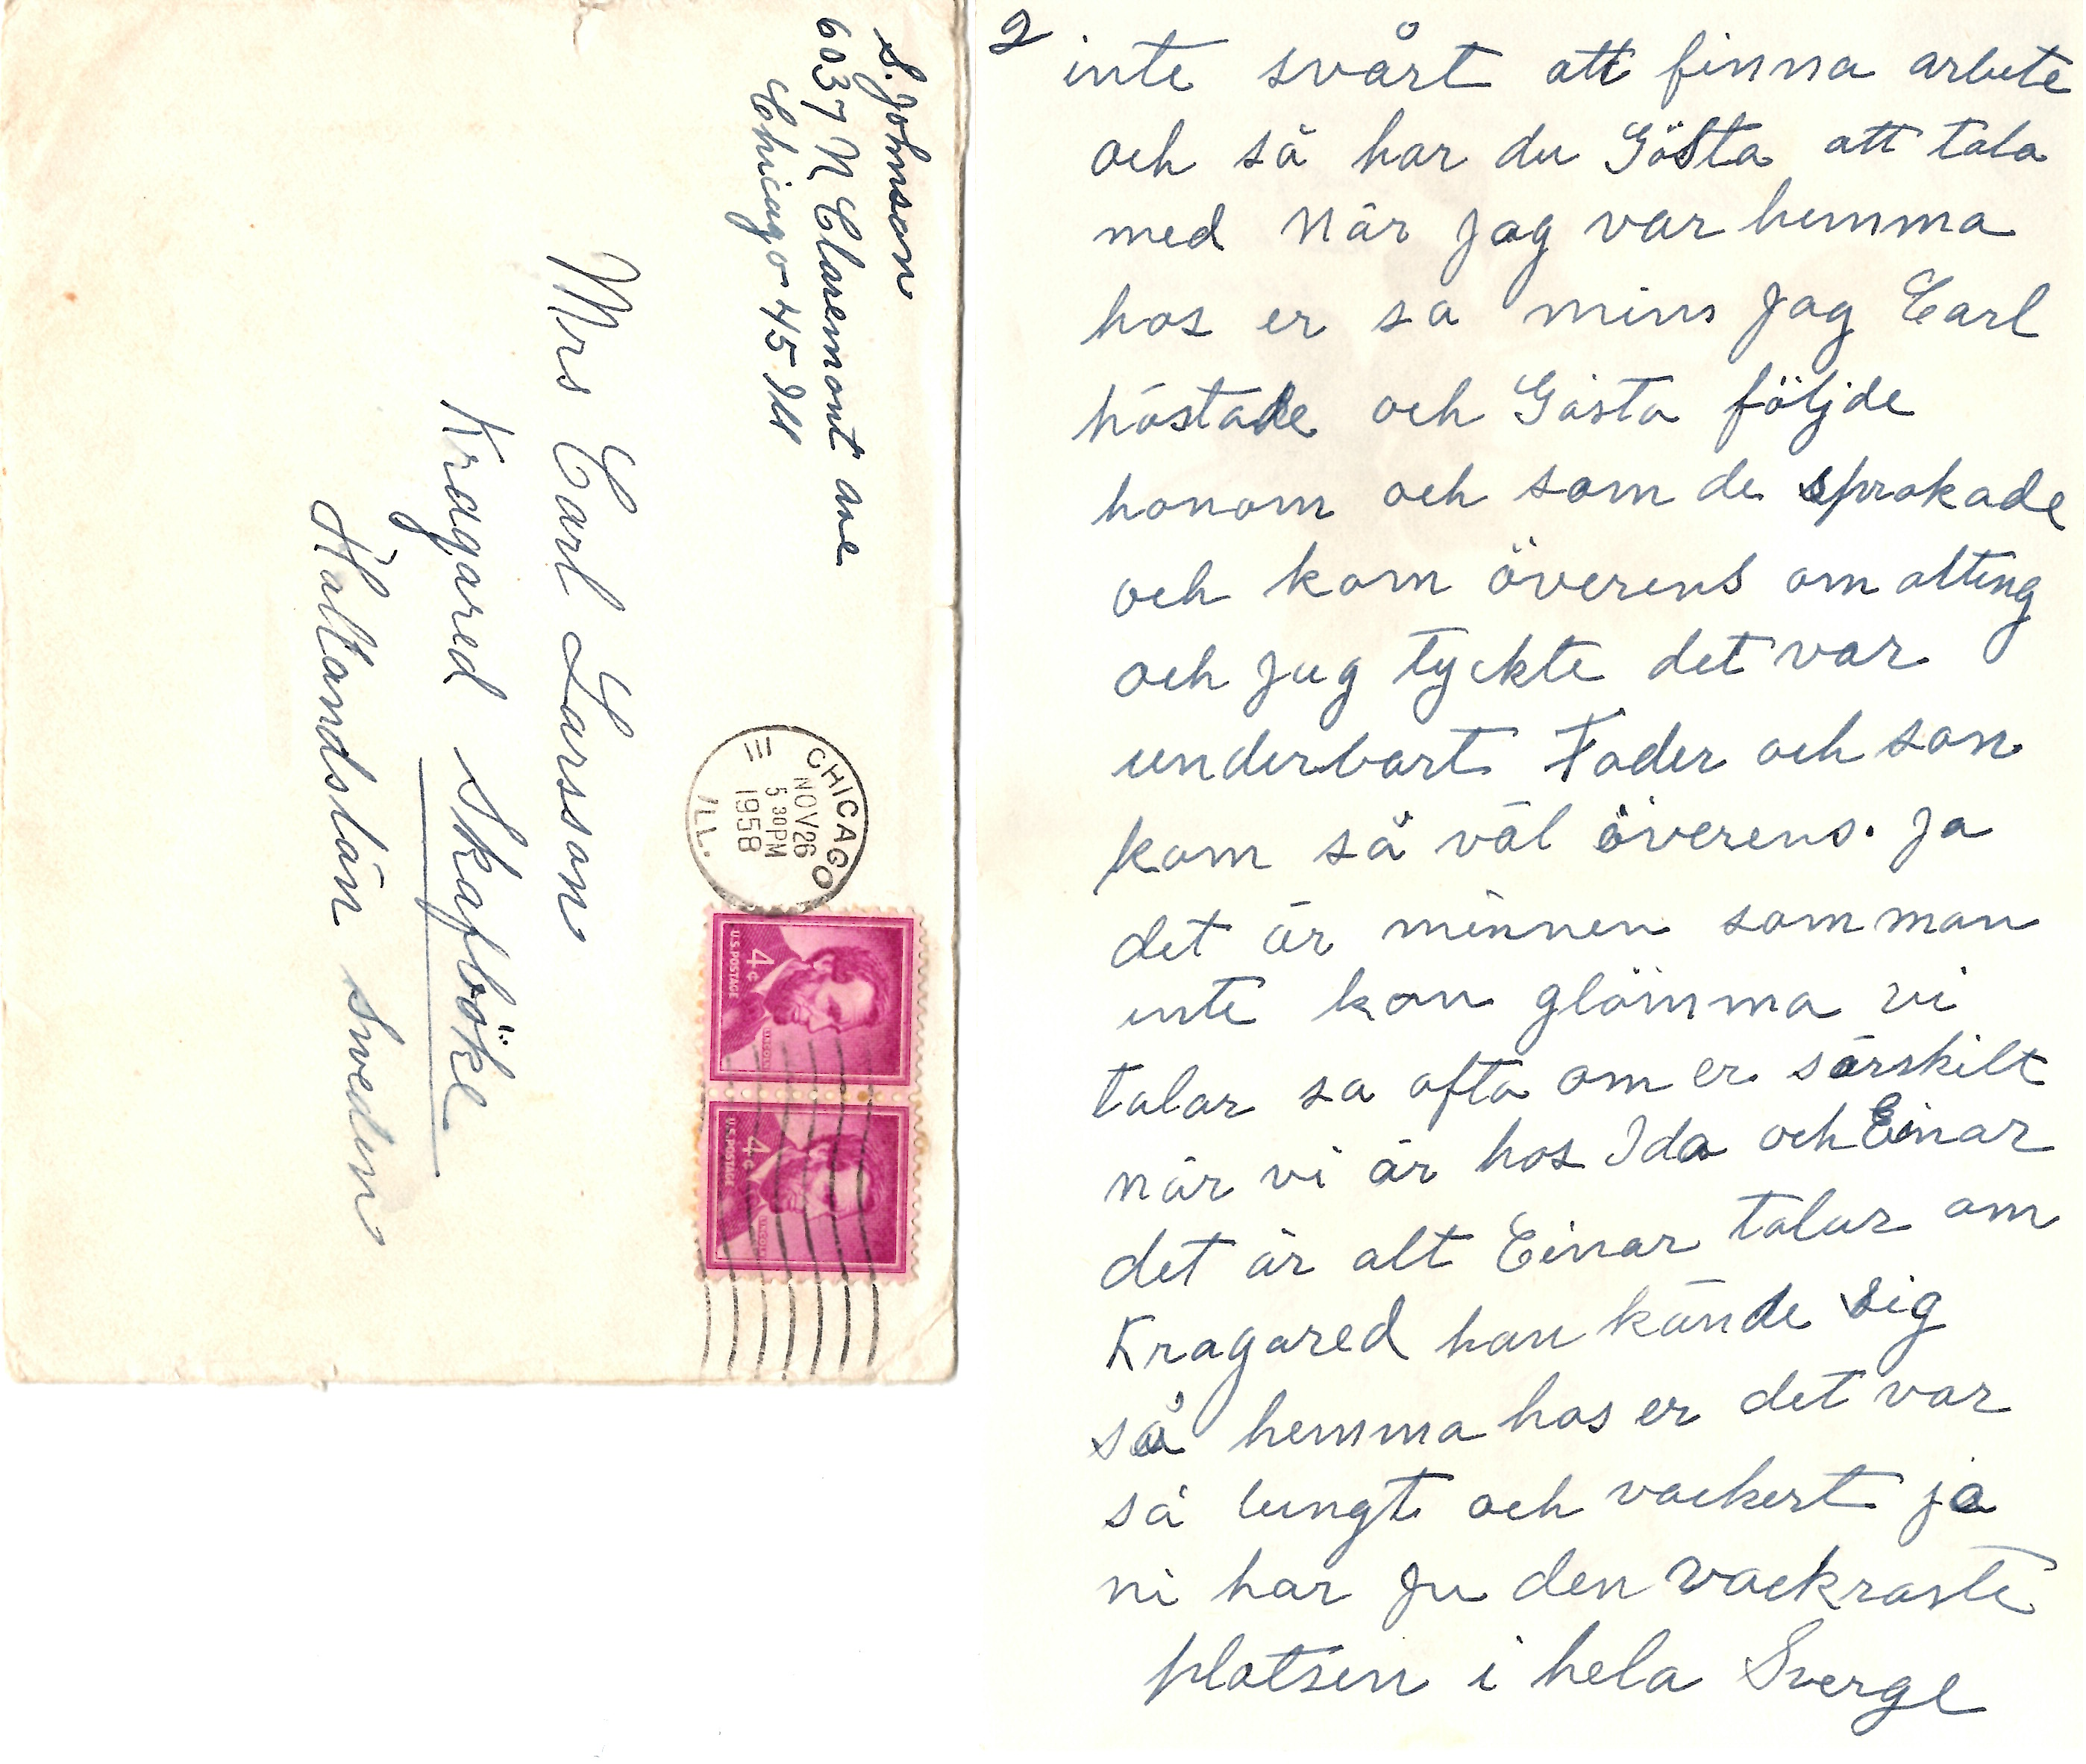 S. Johnson
6037 N Claremont ave
Chicago 45 Ill
Mrs Carl Larsson
Kragared Skafböke
Hallandslän Sweden
CHICAGO
NOV 26
5 30 PM
1958
ILL.
4¢
U.S. POSTAGE
LINCOLN
4¢
U.S. POSTAGE
LINCOLN
2
inte svårt att finna arbete
och så har du Gösta att tala
med När Jag var hemma
hos er sa mins Jag Carl
höstade och Gösta följde
honom och som de sprakade
och kom överens om alting
och Jag tyckte det var
underbart Fader och son
kom så väl överens. Ja
det är minnen som man
inte kan glömma vi
talar sa ofta om er särskilt
när vi är hos Ida och Einar
det är alt Einar talar om
Kragared han kände sig
så hemma hos er det var
så lungt och vackert ja
ni har Ju den vackraste
platsen i hela Sverge